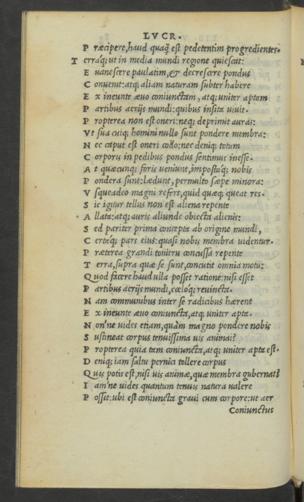 LVCR.
P ræcipere, haud quaq̃ est pedetentim progredientes.
T erraq; ut in media mundi regione quiescat:
E uanescere paulatim, & decrescere pondus
C onuenit: atq; aliam naturam subter habere
E x ineunte æuo coniunctam, atq; uniter aptam
P artibus aerijs mundi: quibus insita uiuit.
P ropterea non est oneri: neq; deprimit auras:
V t sua cuiq; homini nullo sunt pondere membra:
N ec caput est oneri collo: nec deniq; totum
C orporis in pedibus pondus sentimus inesse.
A t quæcunq; foris ueniunt, impostaq; nobis
P ondera sunt: lædunt, permulto sæpe minora:
V squeadeo magni refert, quid quæq; queat res.
S ic igitur tellus non est aliena repente
A llata: atq; auris aliunde obiecta alienis:
S ed pariter prima concepta ab origine mundi,
C ertaq; pars eius: quasi nobis membra uidentur.
P ræterea grandi tonitru concussa repente
T erra, supra quæ se sunt, concutit omnia motu:
Q uod facere haud ulla posset ratione: nisi esset
P artibus aerijs mundi, cœloq; reuincta.
N am communibus inter se radicibus hærent
E x ineunte æuo coniuncta, atq; uniter apta.
N on'ne uides etiam, quàm magno pondere nobis
S ustineat corpus tenuissima uis animai?
P ropterea quia tam coniuncta, atq; uniter apta est.
D eniq; iam saltu pernici tollere corpus
Q uis potis est, nisi uis animæ, quæ membra gubernat?
I am'ne uides quantum tenuis natura ualere
P ossit: ubi est coniuncta graui cum corpore: ut aer
Coniunctus